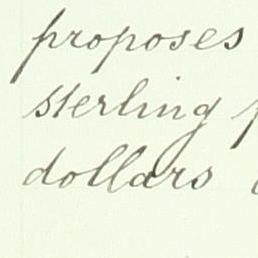 proposes
sterling
dollars